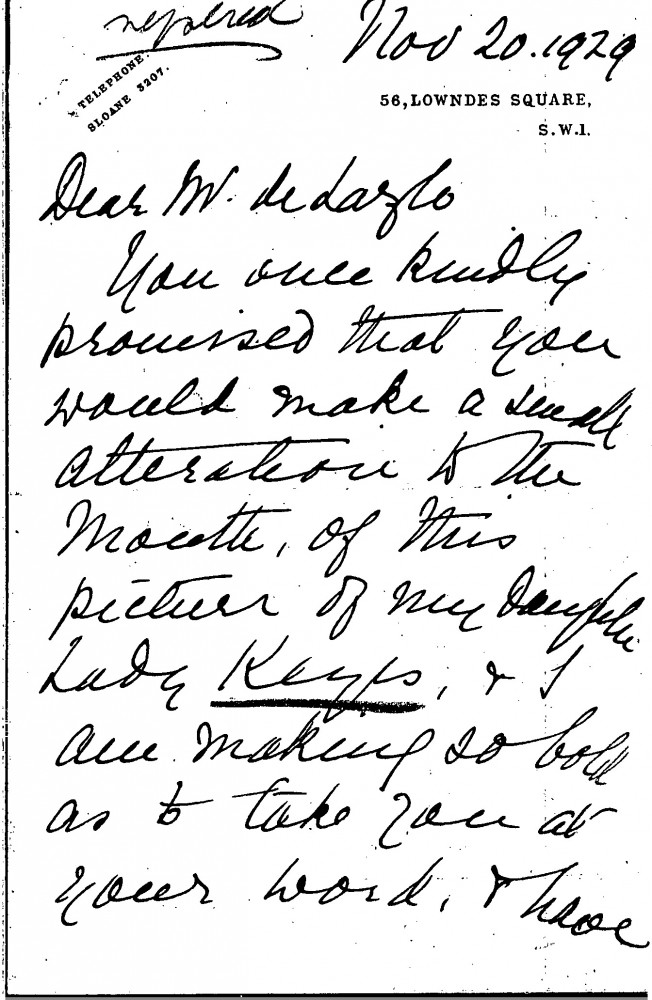 Nov 20. 1929
TELEPHONE.
SLOANE 3207.
56, LOWNDES SQUARE,
S.W.1.
Dear Mr. de Lazlo
You once kindly
promised that you
would make a small
alteration to the
Mouth, of this
picture of my Daughter
Lady Keyes, & I
am making so bold
as to take you at
your word, & have